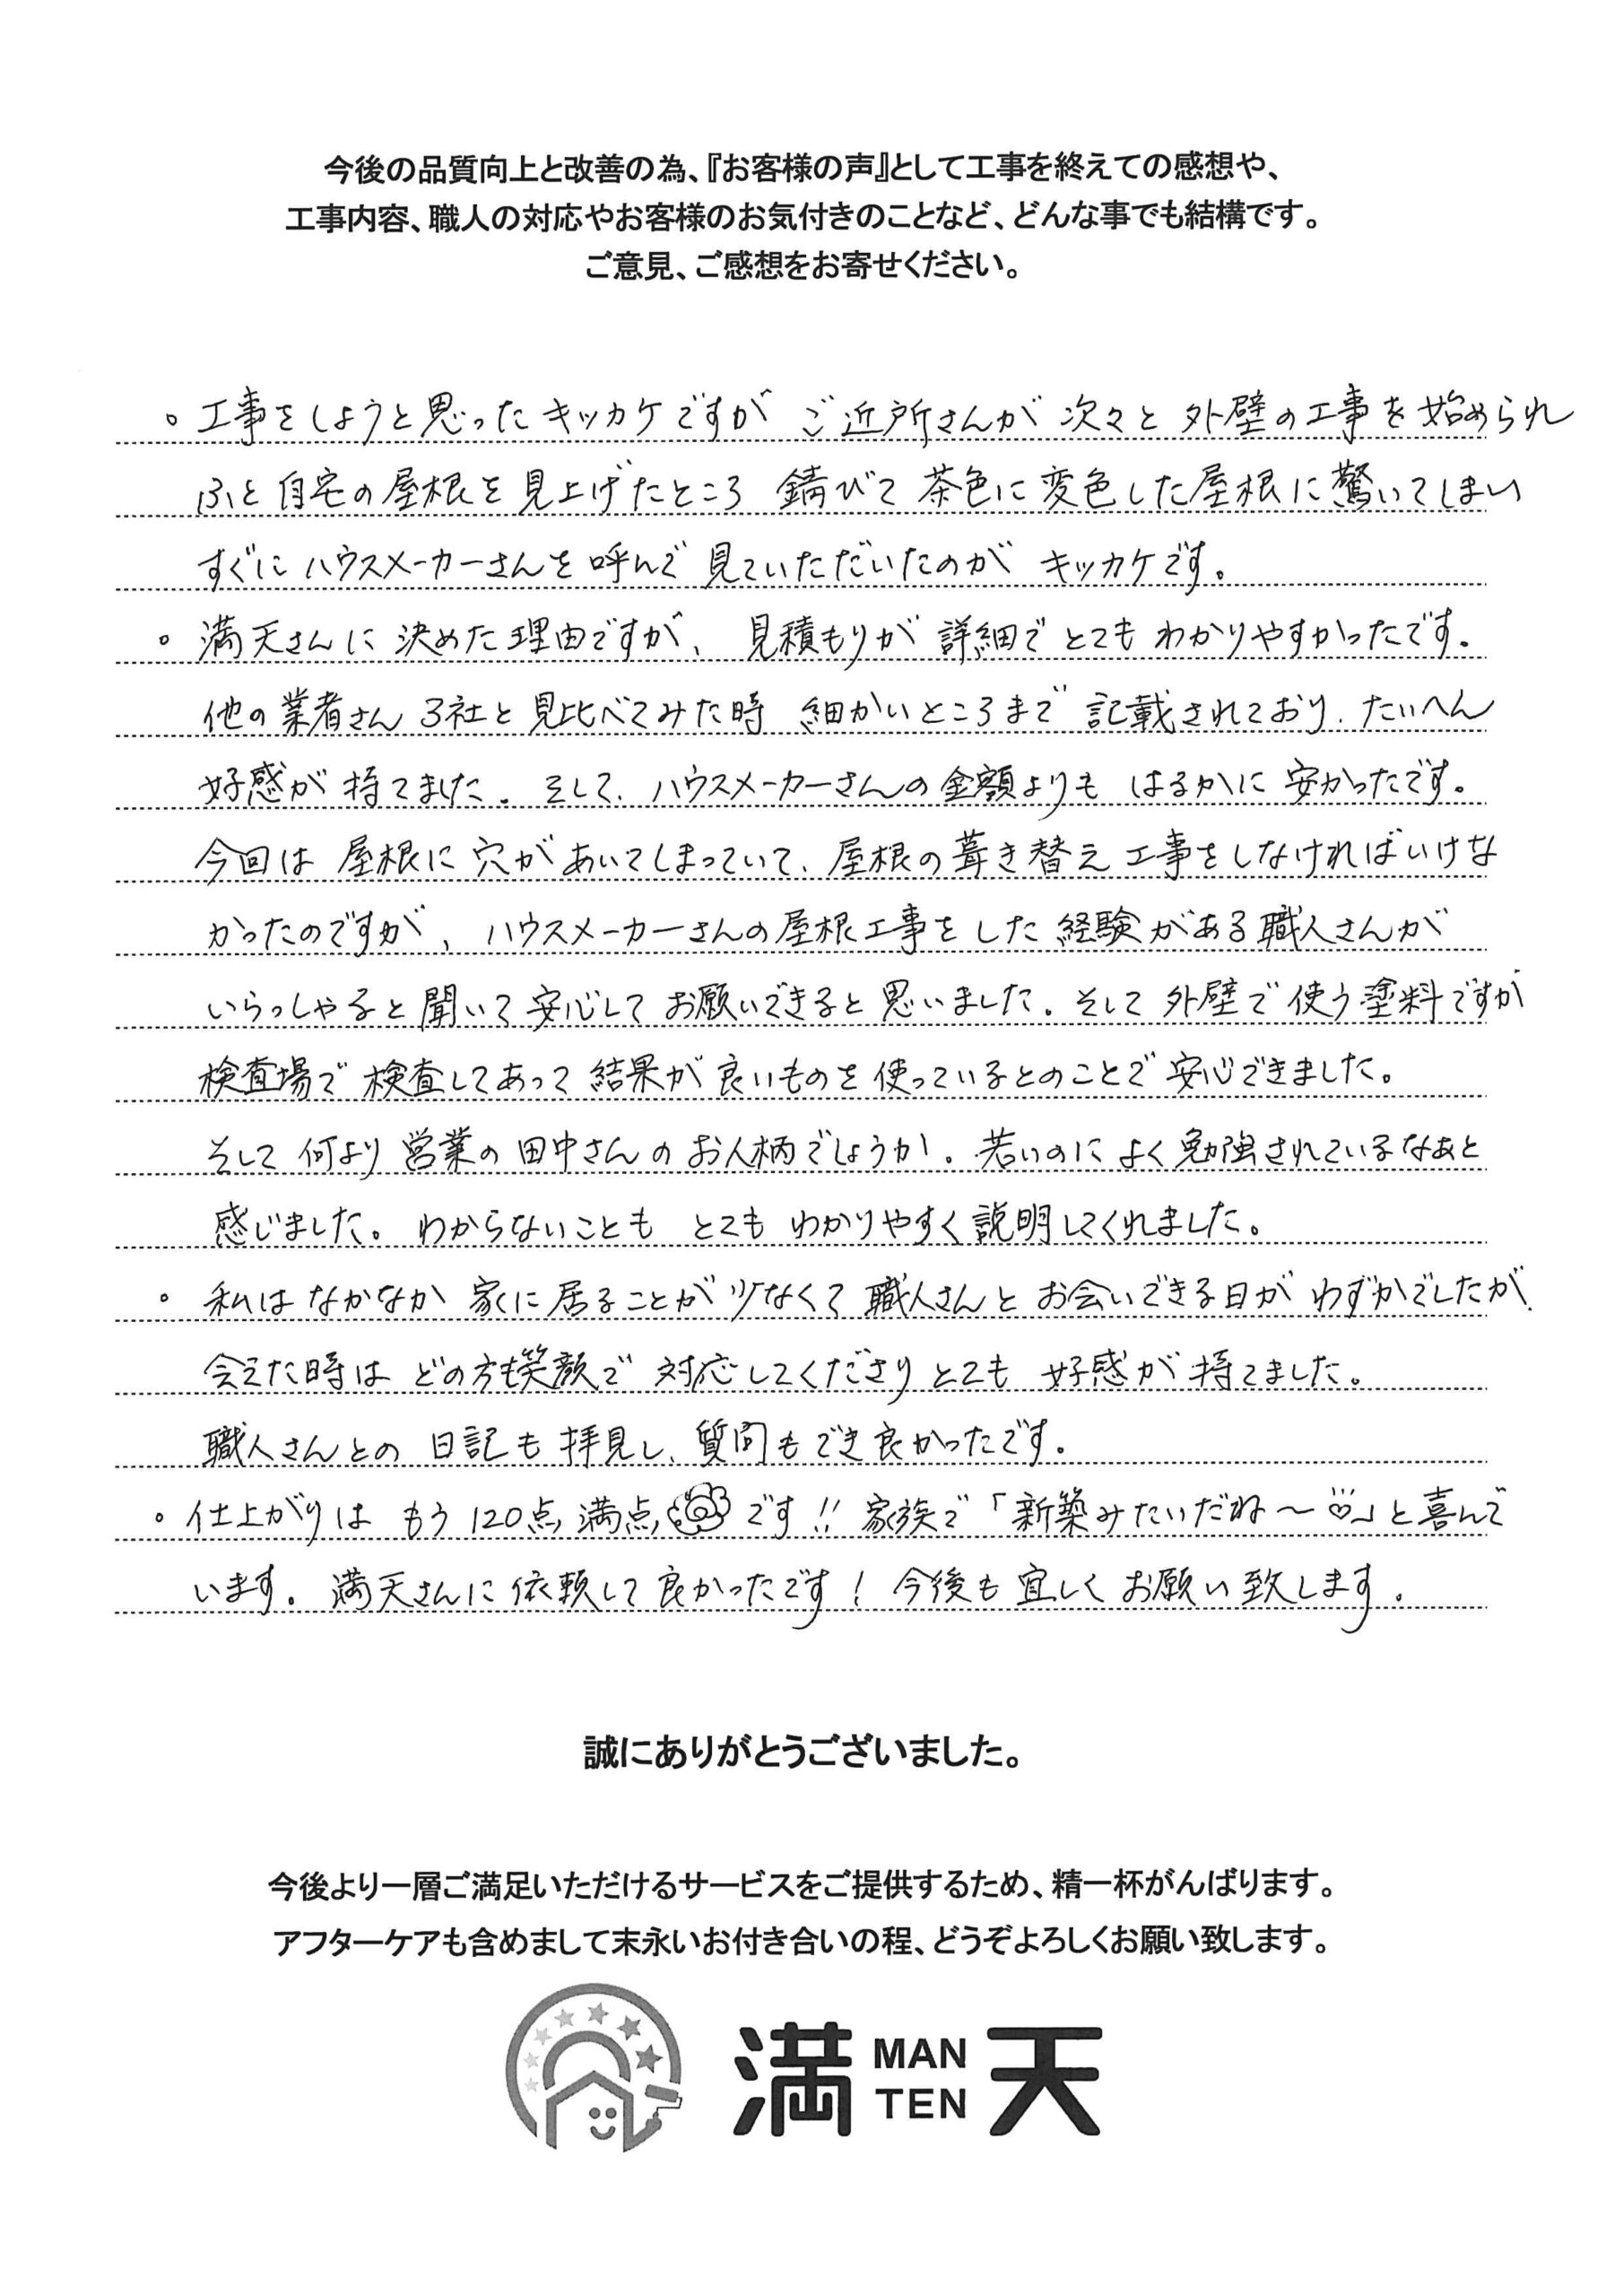 今後の品質向上と改善の為、『お客様の声』として工事を終えての感想や、
工事内容、職人の対応やお客様のお気付きのことなど、どんな事でも結構です。
ご意見、ご感想をお寄せください。
。工事をしようと思ったキッカケですが ご近所さんが 次々と 外壁の工事を始められ
ふと自宅の屋根を見上げたところ 錆びて茶色に変色した屋根に驚いてしまい
すぐにハウスメーカーさんを呼んで見ていただいたのが キッカケです。
。満天さんに決めた理由ですが、見積もりが詳細でとてもわかりやすかったです。
他の業者さん3社と見比べてみた時 細かいところまで記載されており、たいへん
好感が持てました。そして、ハウスメーカーさんの金額よりも はるかに安かったです。
今回は屋根に穴があいてしまっていて、屋根の葺き替え工事をしなければいけな
かったのですが、ハウスメーカーさんの屋根工事をした経験がある職人さんが
いらっしゃると聞いて安心してお願いできると思いました。そして外壁で使う塗料ですが
検査場で検査してあって結果が良いものを使っているとのことで安心できました。
そして何より営業の田中さんのお人柄でしょうか。若いのによく勉強されているなぁと
感じました。わからないことも とてもわかりやすく説明してくれました。
。私はなかなか家に居ることが少なくて職人さんとお会いできる日がわずかでしたが、
会えた時はどの方も笑顔で対応してくださりとても好感が持てました。
職人さんとの日記も拝見し、質問もでき良かったです。
。仕上がりは もう120点満点です!! 家族で「新築みたいだね〜♡」と喜んで
います。満天さんに依頼して良かったです！今後も宜しくお願い致します。
誠にありがとうございました。
今後より一層ご満足いただけるサービスをご提供するため、精一杯がんばります。
アフターケアも含めまして末永いお付き合いの程、どうぞよろしくお願い致します。
満 MAN TEN 天